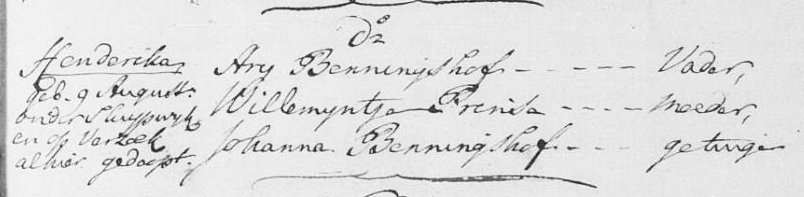 do
Henderika Ary Benningshof - - - - - Vader,
geb. 9 August: Willemyntje Prensa - - - - moeder,
onder Sluypwyk
en op Verzoek Johanna Benningshof - - - getuige
alhier gedoopt.